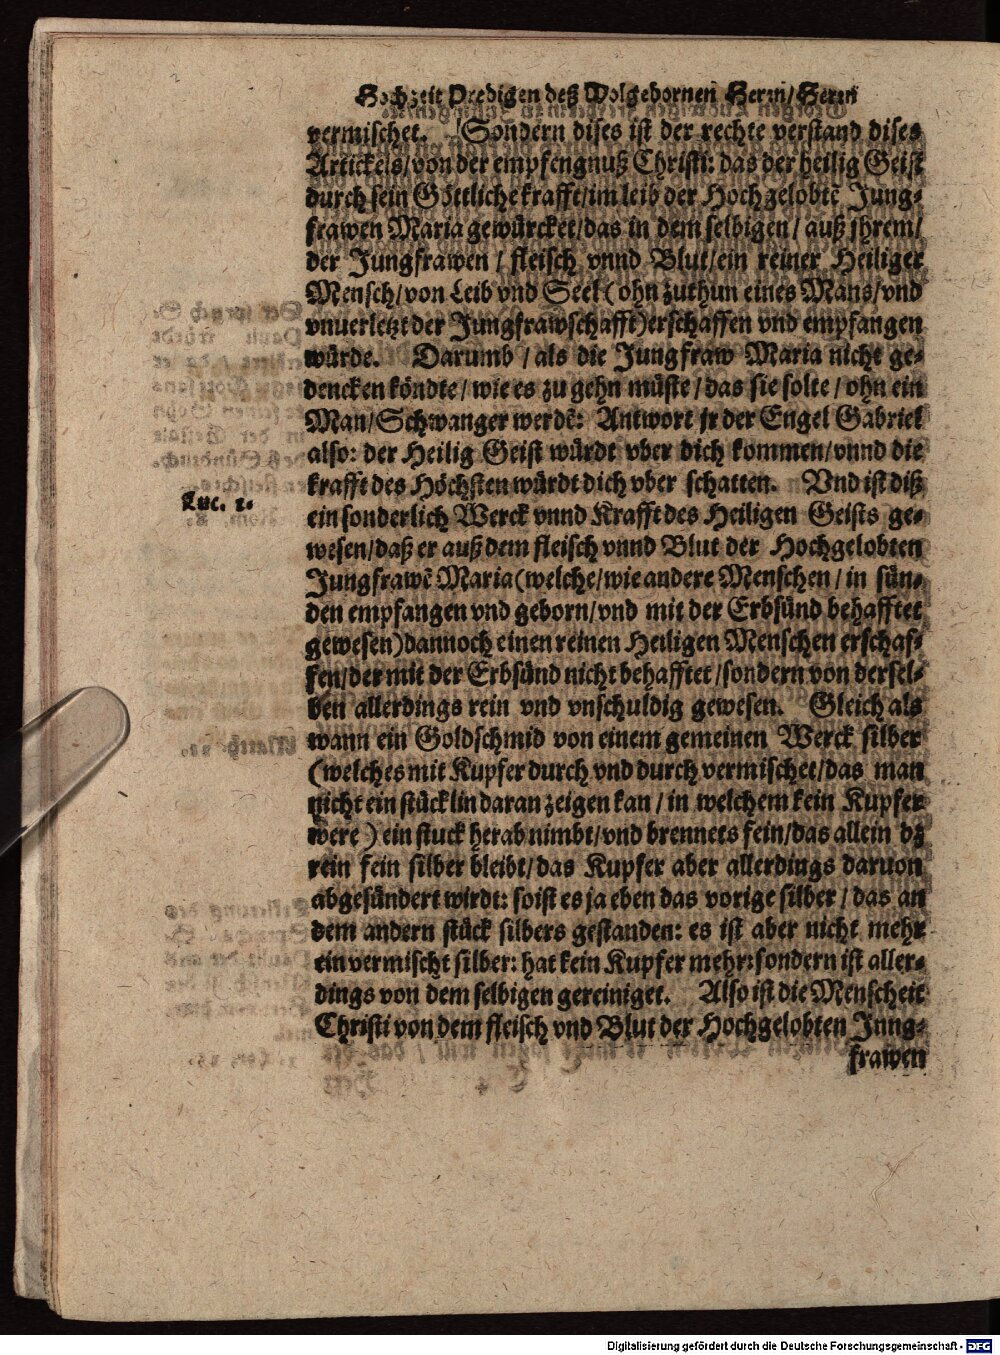 Hochzeit Predigen deß Wolgebornen Herrn/Herrn
vermischet. Sondern dises ist der rechte verstand dises
Artickels/von der empfengnuß Christi: das der heilig Geist
durch sein Göttliche krafft/im leib der Hochgelobtẽ Jung-
frawen Maria gewürcket/das in dem selbigen/auß jhrem/
der Jungfrawen/fleisch vnnd Blut/ein reiner Heiliger
Mensch/von Leib vnd Seel (ohn zuthun eines Mans/vnd
vnuerletzt der Jungfrawschafft) erschaffen vnd empfangen
würde. Darumb/als die Jungfraw Maria nicht ge-
dencken köndte/wie es zu gehn müste/das sie solte/ohn ein
Man/Schwanger werdẽ: Antwort jr der Engel Gabriel
also: der Heilig Geist würdt vber dich kommen/vnnd die
krafft des Höchsten würdt dich vber schatten. Vnd ist diß
Luc. 1.
ein sonderlich Werck vnnd Krafft des Heiligen Geists ge-
wesen/daß er auß dem fleisch vnnd Blut der Hochgelobten
Jungfrawẽ Maria (welche/wie andere Menschen/in sün-
den empfangen vnd geborn/vnd mit der Erbsünd behafftet
gewesen) dannoch einen reinen Heiligen Menschen erschaf-
fen/der mit der Erbsünd nicht behafftet/sondern von dersel-
ben allerdings rein vnd vnschuldig gewesen. Gleich als
wann ein Goldschmid von einem gemeinen Werck silber
(welches mit Kupfer durch vnd durch vermischet/das man
nicht ein stücklin daran zeigen kan/in welchem kein Kupfer
were) ein stuck herab nimbt/vnd brennets fein/das allein dz
rein fein silber bleibt/das Kupfer aber allerdings daruon
abgesündert wirdt: so ist es ja eben das vorige silber/das an
dem andern stück silbers gestanden: es ist aber nicht mehr
ein vermischt silber: hat kein Kupfer mehr: sondern ist aller-
dings von dem selbigen gereiniget. Also ist die Menscheit
Christi von dem fleisch vnd Blut der Hochgelobten Jung-
frawen
Digitalisierung gefördert durch die Deutsche Forschungsgemeinschaft - DFG